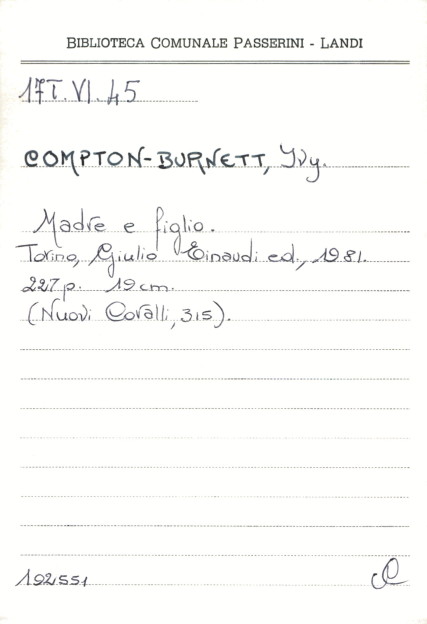 BIBLIOTECA COMUNALE PASSERINI - LANDI
17T.VI.45
COMPTON-BURNETT, Yvy.
Madre e figlio.
Torino, Giulio Einaudi ed., 1981.
227 p. 19 cm.
(Nuovi Coralli, 315).
192551